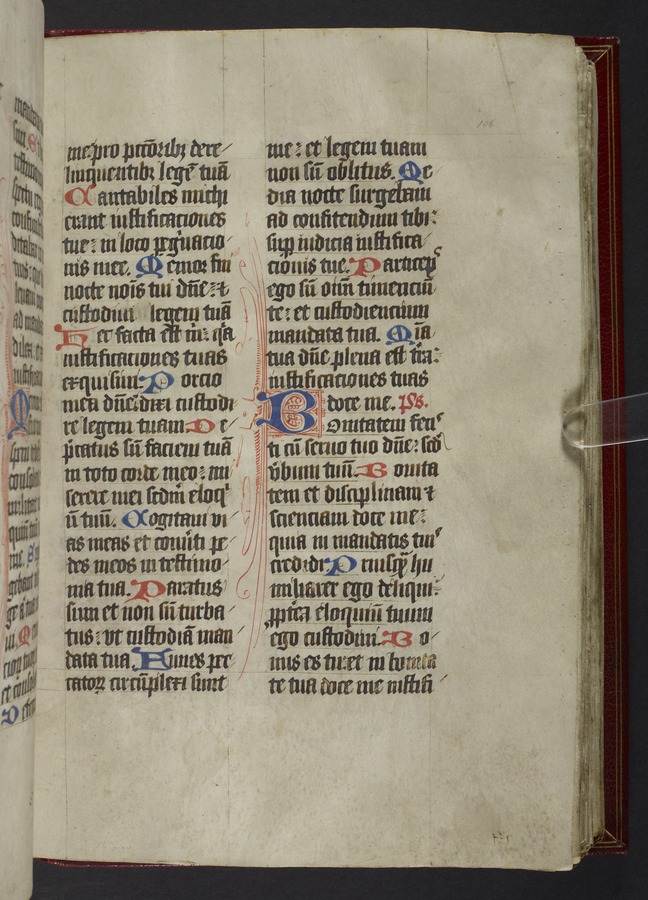 me: pro pctōribꝫ dere⸗
linquentibꝫ legē tuā
Cantabiles michi
erant iustificaciones
tue: in loco pegͥnacio⸗
nis mee. Memor fui
nocte nois tui dn̄e: ⁊
custodiui legem tuā
Hec facta est m̄: qa
iustificationes tuas
exquisiui. Porcio
mea dn̄e: dixi custodi⸗
re legem tuam. De⸗
p̄catus sū faciem tuā
in toto corde meo: mi⸗
serere mei scdm̄ eloqͥ
ū tuū. Cogitaui vi⸗
as meas et conūti pe⸗
des meos in testimo⸗
nia tua. Paratus
sum et non sū turba⸗
tus: vt custodiā man⸗
data tua. Funes pec⸗
catoꝝ circūplexi sunt
me: et legem tuam
non sū oblitus. Me⸗
dia nocte surgebam
ad confitendum tibi:
sup iudicia iustifica⸗
cionis tue. Particep̄
ego sū oim̄ timenciū
te: et custodiencium
mandata tua. Mīa
tua dn̄e plena est tr̄a:
iustificaciones tuas
doce me. Ps.
Bonitatem fecⁱ⸗
ti cū seruo tuo dn̄e: scd̄
v̄bum tuū. Bonita⸗
tem et disciplinam ⁊
scienciam doce me:
quia in mandatis tuiˢ
credidi. Priusqͣ hu⸗
miliarer ego deliqui:
ꝓpt̄ea eloquiū tuum
ego custodiui. Bo⸗
nus es tu: et in bonita⸗
te tua doce me iustifi⸗